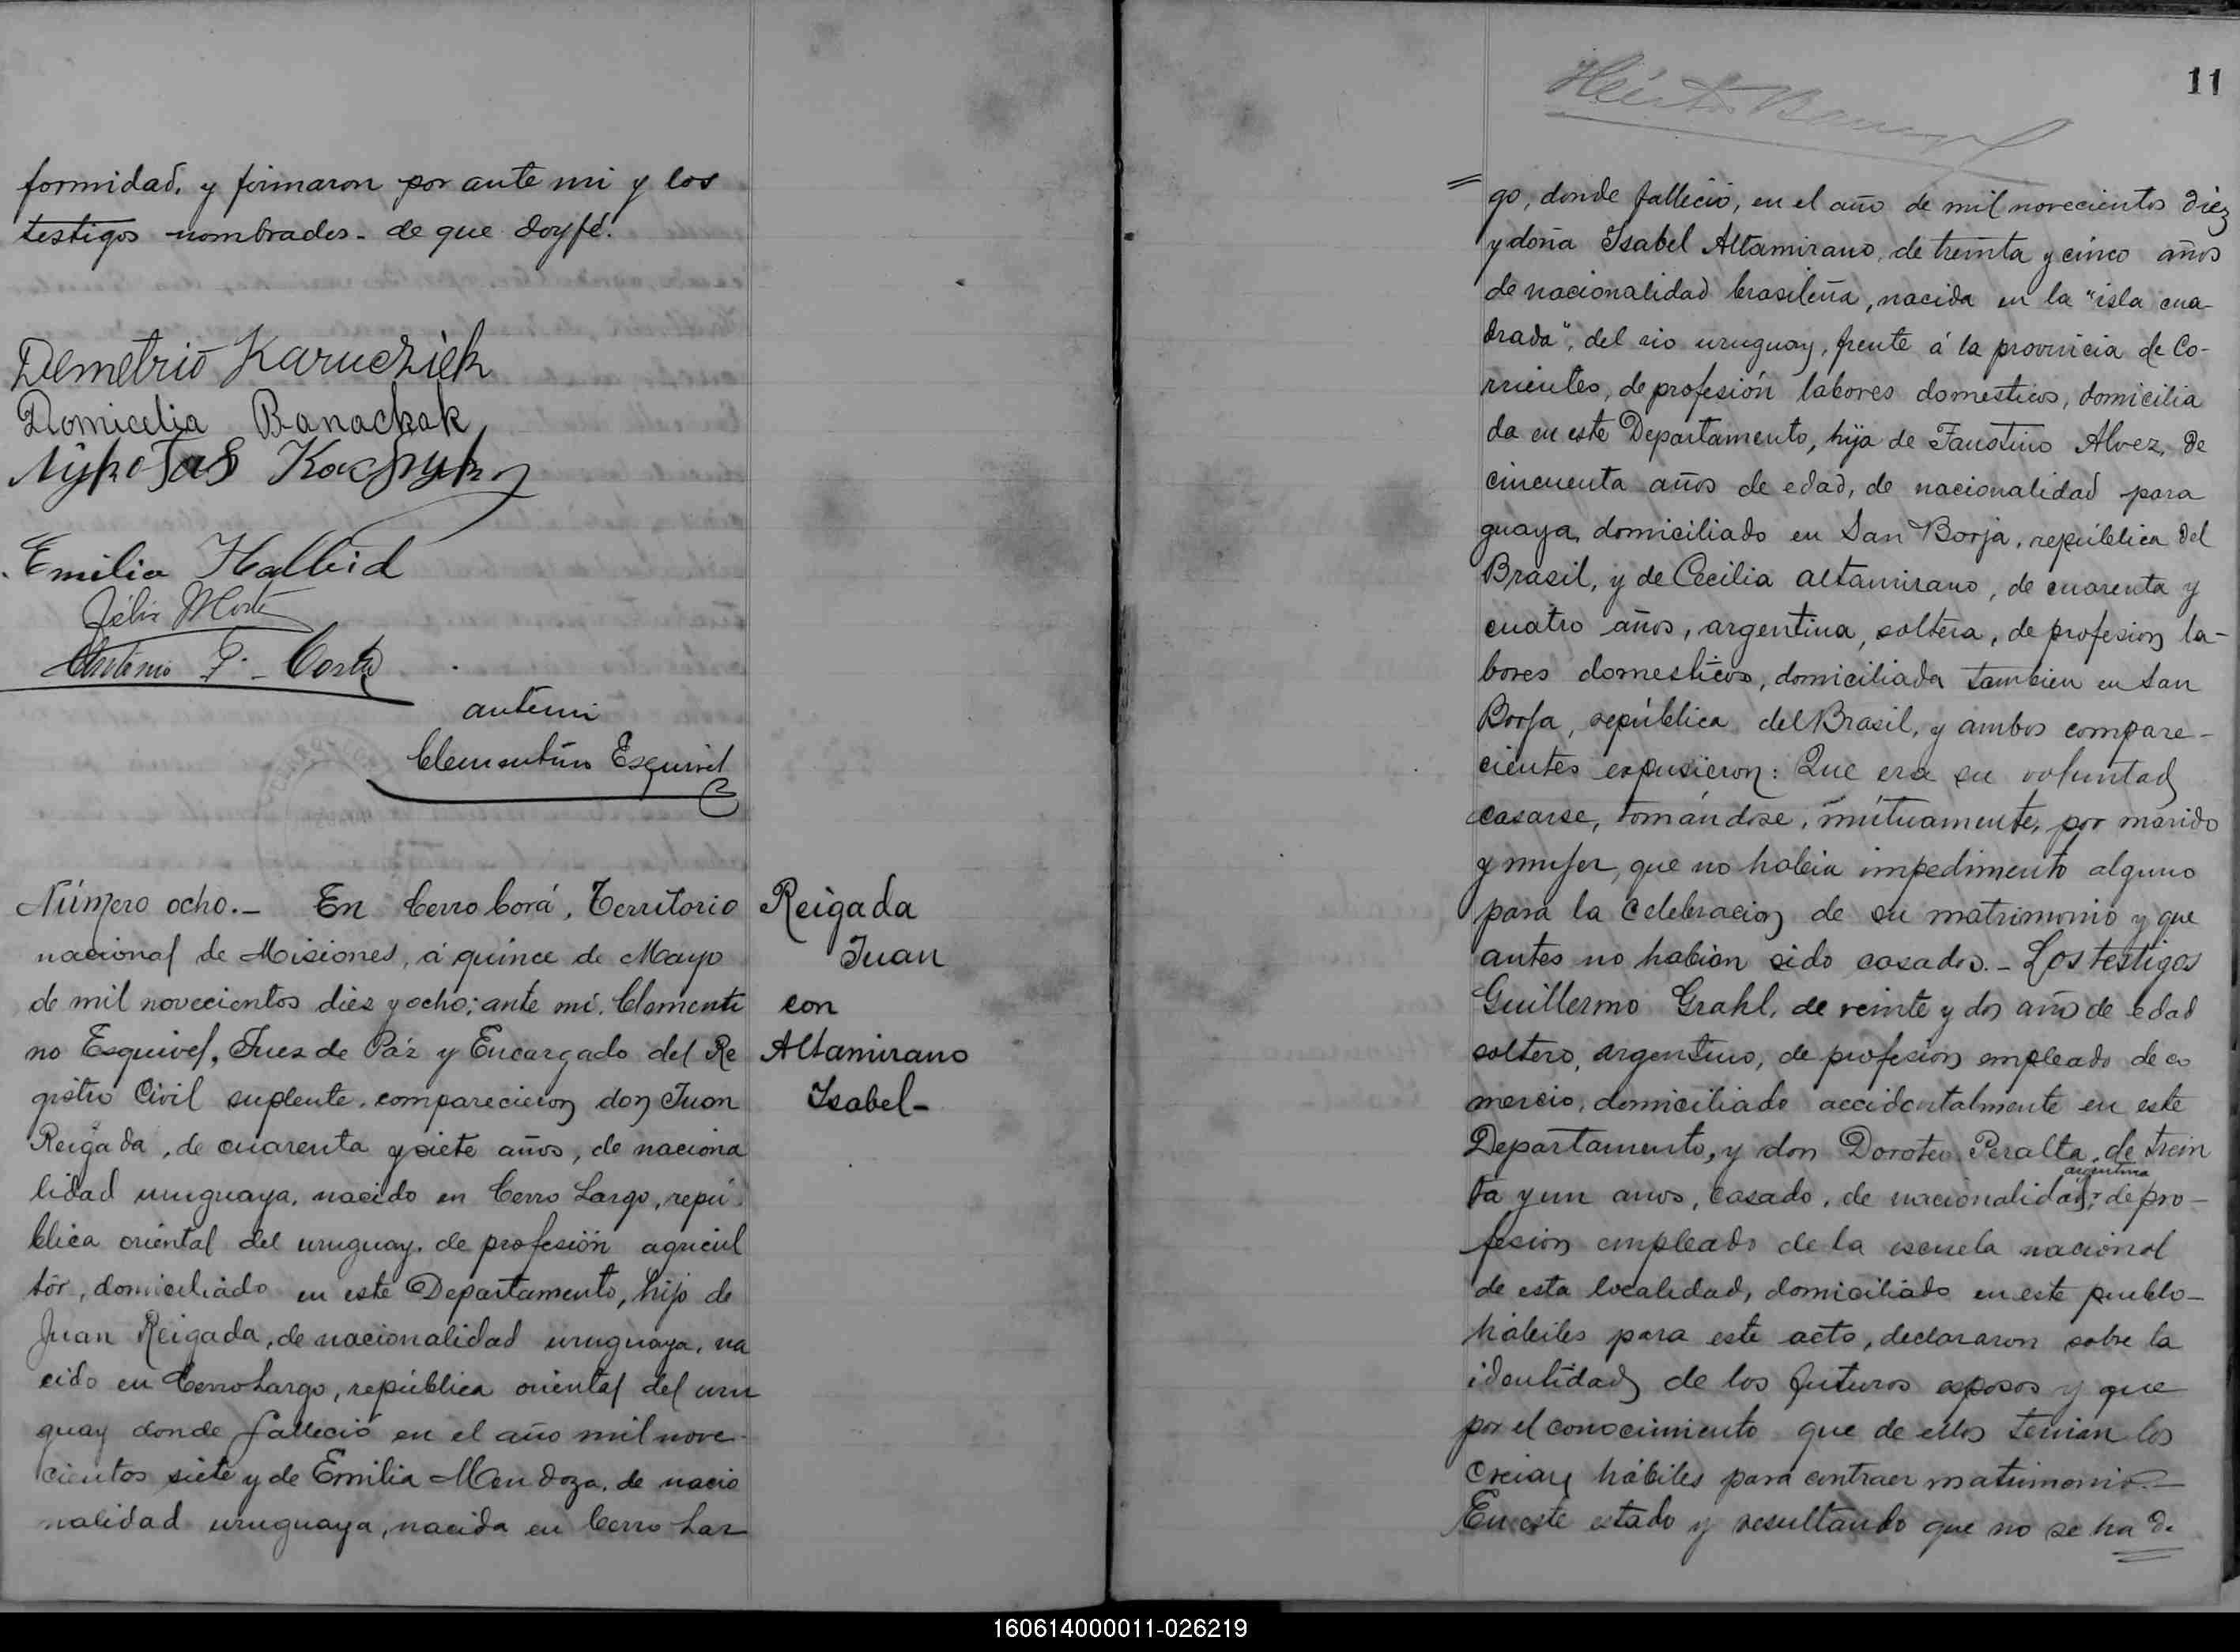 formidad, y firmaron por ante mi y los
testigos nombrados - de que doy fé.
Demetrio Karucziek
Domicelia Banachak
Emilio Halbid
Antonio P. Costa
antemi
Clementino Esquivel
Número ocho.- En Cerro Corá, Territorio
nacional de Misiones, á quince de Mayo
de mil novecientos diez y ocho; ante mi, Clementi
no Esquivel, Juez de Páz y Encargado del Re
gistro Civil suplente, comparecieron don Juan
Reigada, de cuarenta y siete años, de naciona
lidad uruguaya, nacido en Cerro Largo, repú
blica oriental del uruguay, de profesión agricul
tór, domiciliado en este Departamento, hijo de
Juan Reigada, de nacionalidad uruguaya, na
cido en Cerro Largo, república oriental del uru
guay donde falleció en el año mil nove-
cientos siete y de Emilia Mendoza, de nacio
nalidad uruguaya, nacida en Cerro Lar
Reigada
Juan
con
Altamirano
Isabel-
11
go, donde falleció, en el año de mil novecientos diez
y doña Isabel Altamirano, de treinta y cinco años
de nacionalidad brasileña, nacida en la "isla cua-
drada", del rio uruguay, frente á la provincia de Co-
rrientes, de profesión labores domésticos, domicilia
da en este Departamento, hija de Faustino Alvez, de
cincuenta años de edad, de nacionalidad para
guaya, domiciliado en San Borja, república del
Brasil, y de Cecilia altamirano, de cuarenta y
cuatro años, argentina, soltera, de profesion la-
bores domesticos, domiciliada tambien en San
Borja, república del Brasil, y ambos compare-
cientes expusieron: Que era su voluntad
casarse, tomándose, mútuamente, por marido
y mujer, que no habia impedimento alguno
para la celebracion de su matrimonio y que
antes no habian sido casados.- Los testigos
Guillermo Grahl, de veinte y dos años de edad
soltero, argentino, de profesion empleado de co
mercio, domiciliado accidentalmente en este
Departamento, y don Doroteo Peralta, de trein
ta y un anos, casado, de nacionalidad argentina, de pro-
fesion empleado de la escuela nacional
de esta localidad, domiciliado en este pueblo-
hábiles para este acto, declararon sobre la
identidad de los futuros esposos y que
por el conocimiento que de ellos tenian los
creian hábiles para contraer matrimonio.-
En este estado y resultando que no se ha de
160614000011-026219